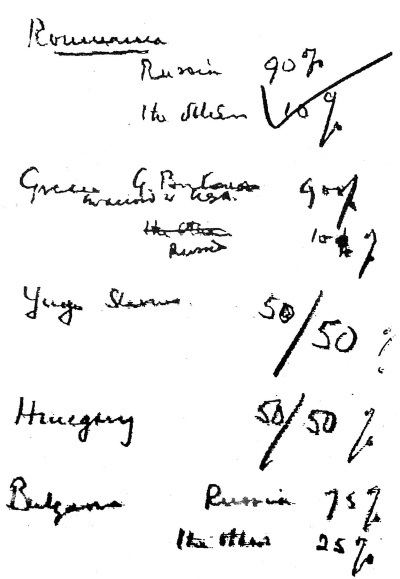 Roumania
Russia 90%
The others 10%
Greece G. Britain 90%
in accord w USA.
The others
Russia 10%
Yugo Slavia 50/50%
Hungary 50/50%
Bulgaria Russia 75%
The others 25%